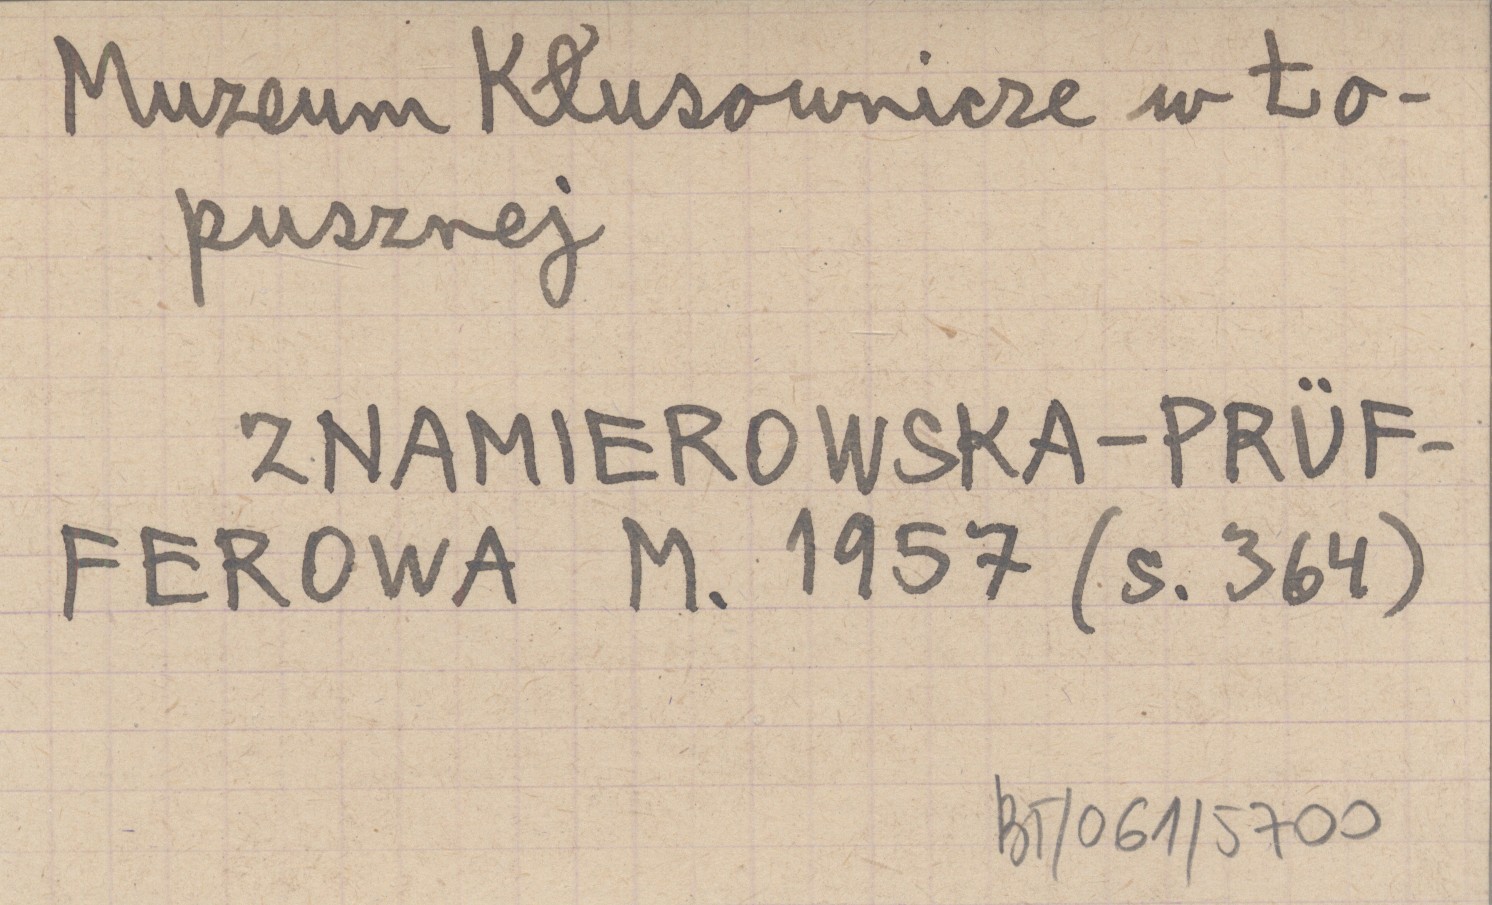 Muzeum Kłusownicze w Ło-
pusznej
ZNAMIEROWSKA-PRÜF-
FEROWA M. 1957 (s. 364)
BT/061/5700